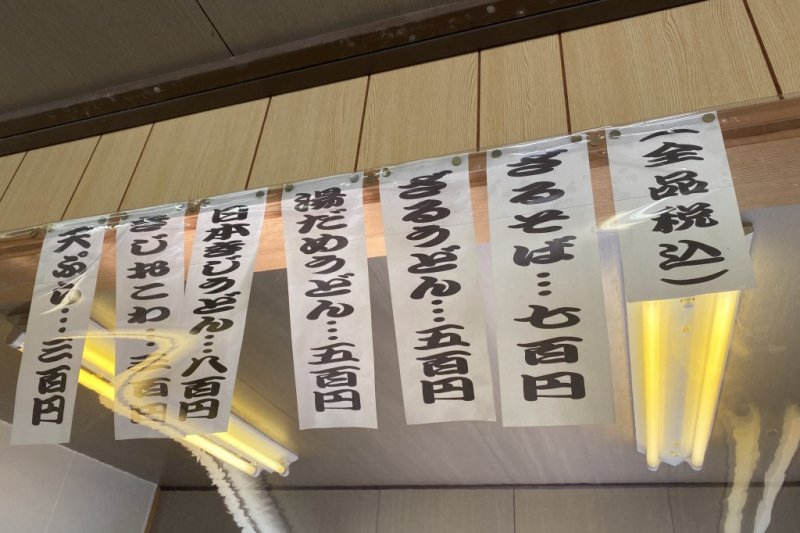 （全品税込）
ざるそば…七百円
ざるうどん…五百円
湯だめうどん…五百円
日本きじうどん…八百円
きじおこわ…三百円
天ぷら…三百円